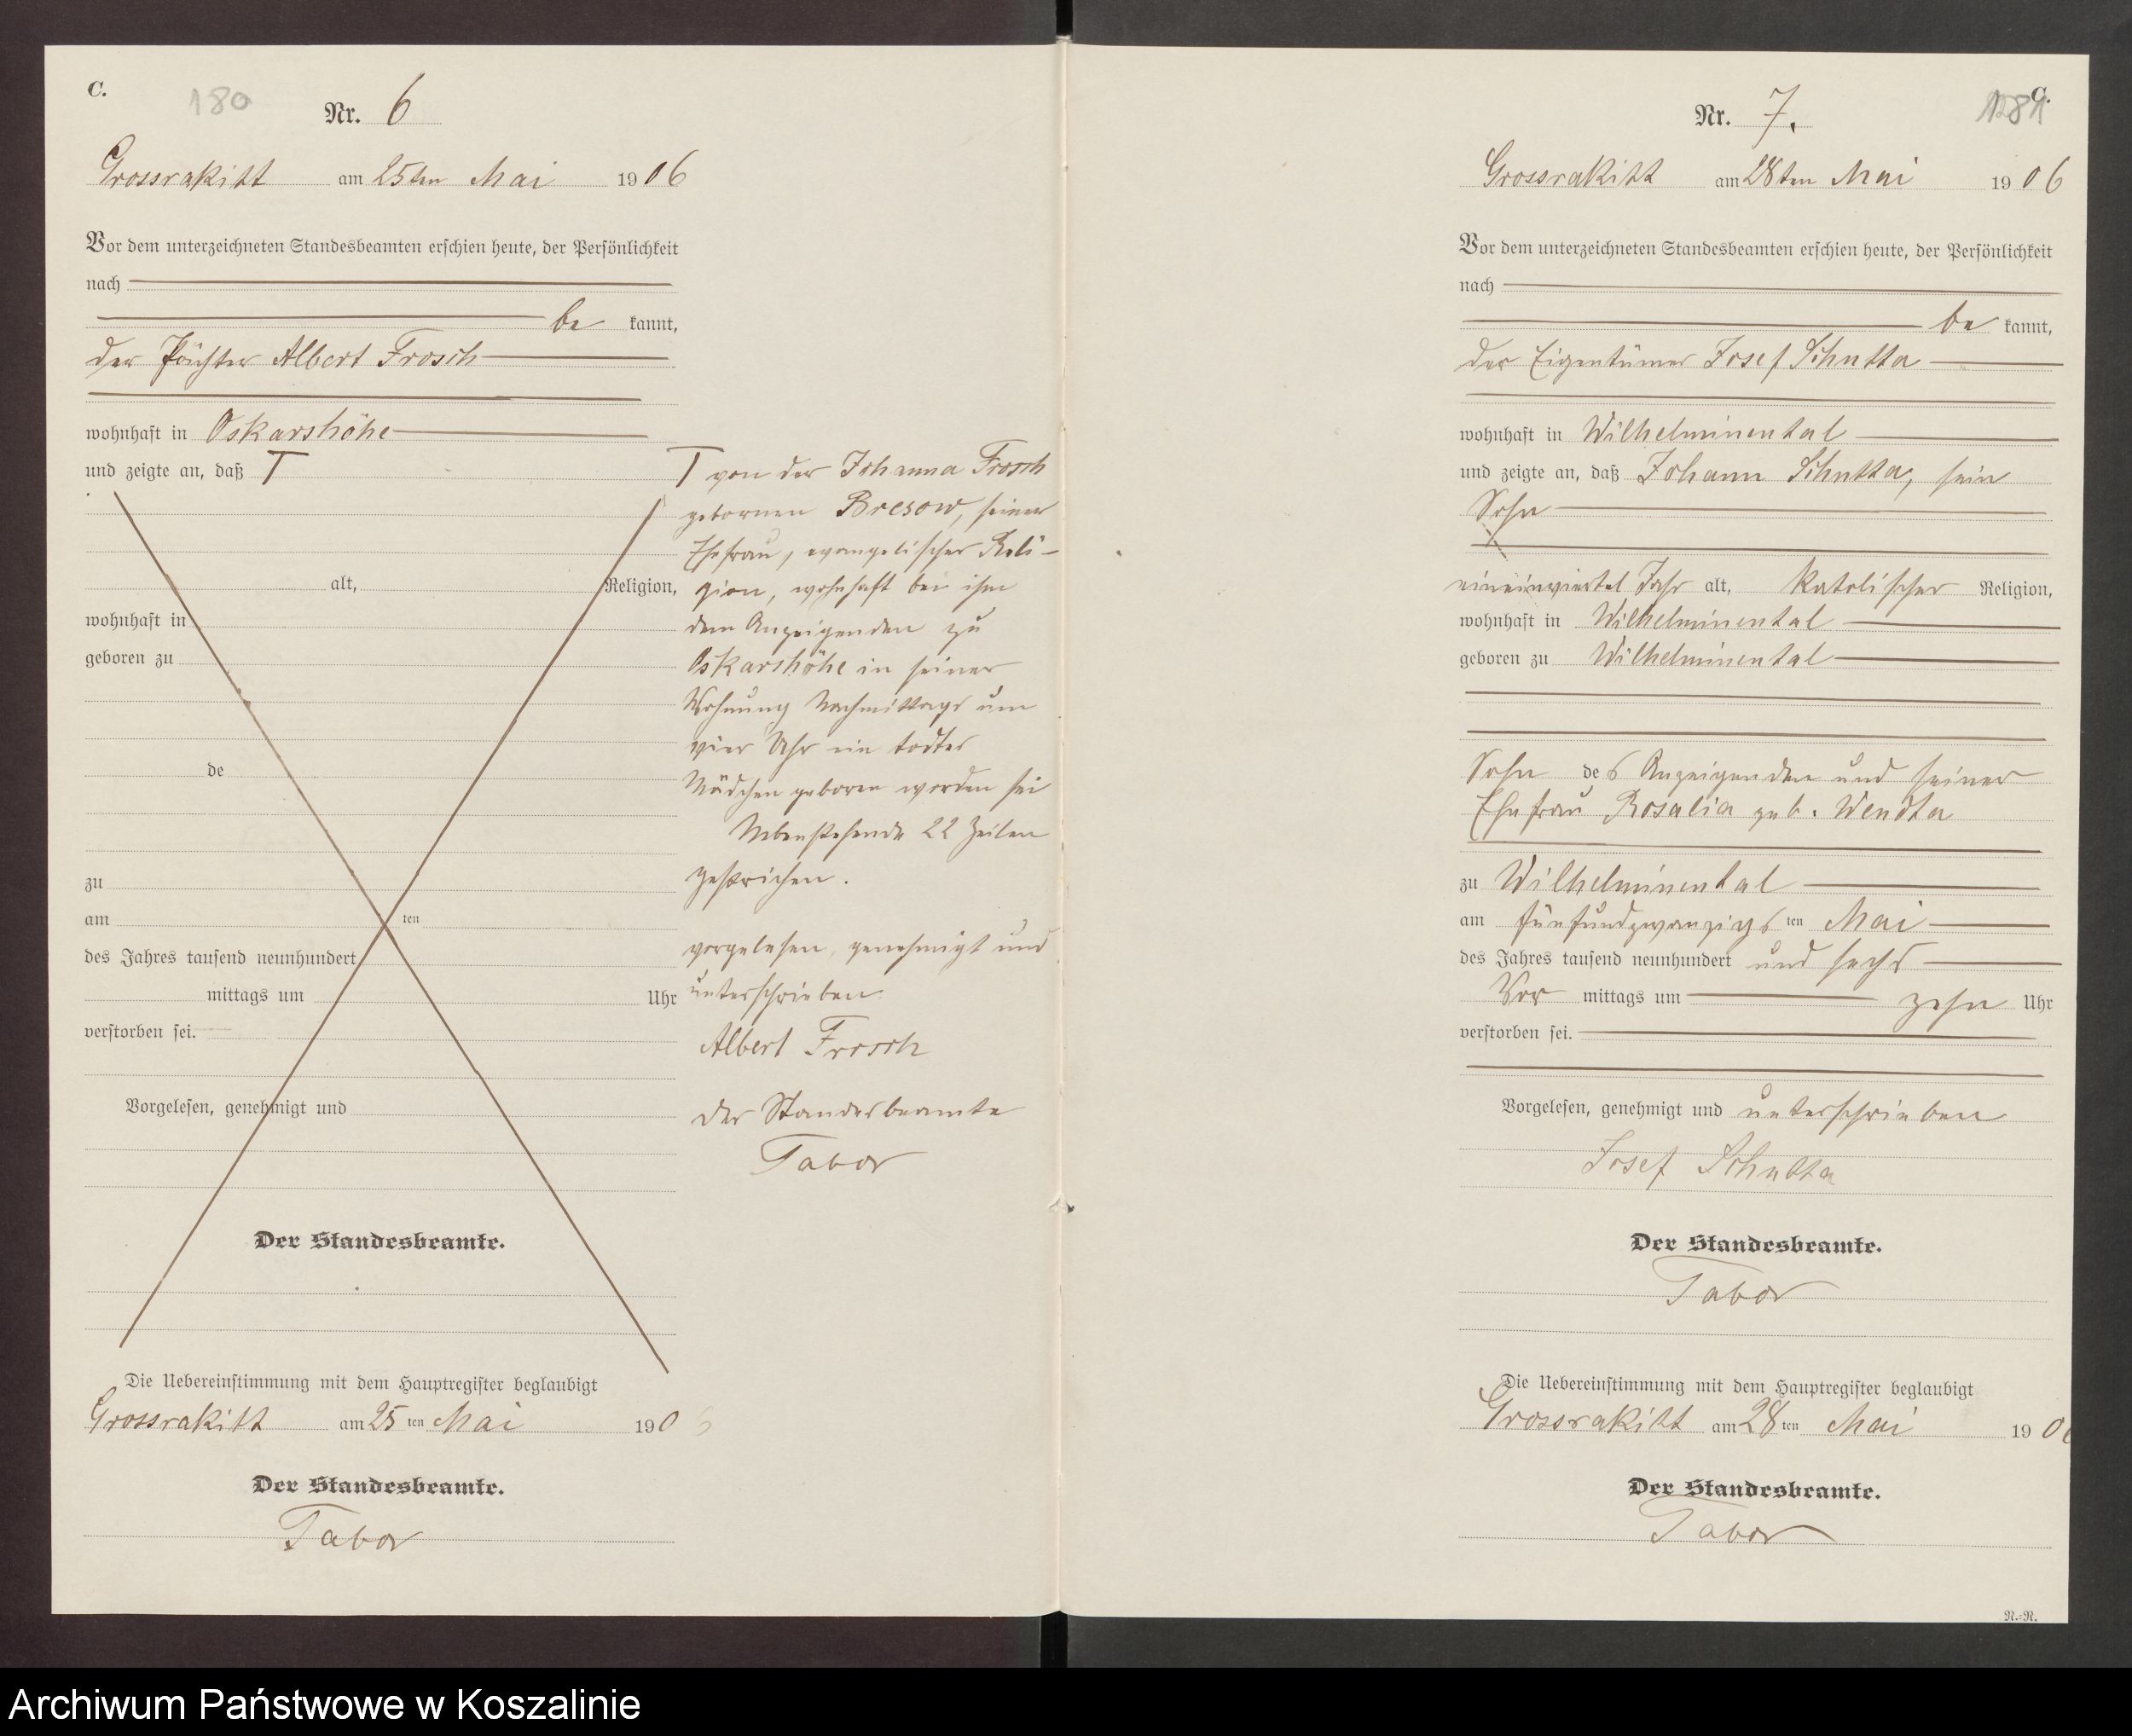 C.
180
Nr. 6
Grossrakitt am 25ten Mai 1906
Vor dem unterzeichneten Standesbeamten erschien heute, der Persönlichkeit
nach
be kannt,
der Pächter Albert Frosch
wohnhaft in Oskarshöhe
und zeigte an, daß T
alt, Religion,
wohnhaft in
geboren zu
de
zu
am ten
des Jahres tausend neunhundert
mittags um Uhr
verstorben sei.
Vorgelesen, genehmigt und
Der Standesbeamte.
T von der Johanna Frosch
gebornen Bresow, seiner
Ehefrau, evangelischer Reli-
gion, wohnhaft bei ihm
dem Anzeigenden zu
Oskarshöhe in seiner
Wohnung Nachmittags um
vier Uhr ein todtes
Mädchen geboren worden sei
Nebenstehende 22 Zeilen
gestrichen.
vorgelesen, genehmigt und
unterschrieben
Albert Frosch
Der Standesbeamte
Tabor
Die Uebereinstimmung mit dem Hauptregister beglaubigt
Grossrakitt am 25 ten Mai 1906
Der Standesbeamte.
Tabor
C.
181
Nr. 7.
Grossrakitt am 28ten Mai 1906
Vor dem unterzeichneten Standesbeamten erschien heute, der Persönlichkeit
nach
be kannt,
der Eigentümer Josef Schutta
wohnhaft in Wilhelminental
und zeigte an, daß Johann Schutta, sein
Sohn
eineinviertel Jahr alt, katolischer Religion,
wohnhaft in Wilhelminental
geboren zu Wilhelminental
Sohn des Anzeigenden und seiner
Ehefrau Rosalia geb. Wendta
zu Wilhelminental
am fünfundzwanzigsten Mai
des Jahres tausend neunhundert und sechs
Vor mittags um zehn Uhr
verstorben sei.
Vorgelesen, genehmigt und unterschrieben
Josef Schutta
Der Standesbeamte.
Tabor
Die Uebereinstimmung mit dem Hauptregister beglaubigt
Grossrakitt am 28 ten Mai 190
Der Standesbeamte.
Tabor
N.=N.
Archiwum Państwowe w Koszalinie